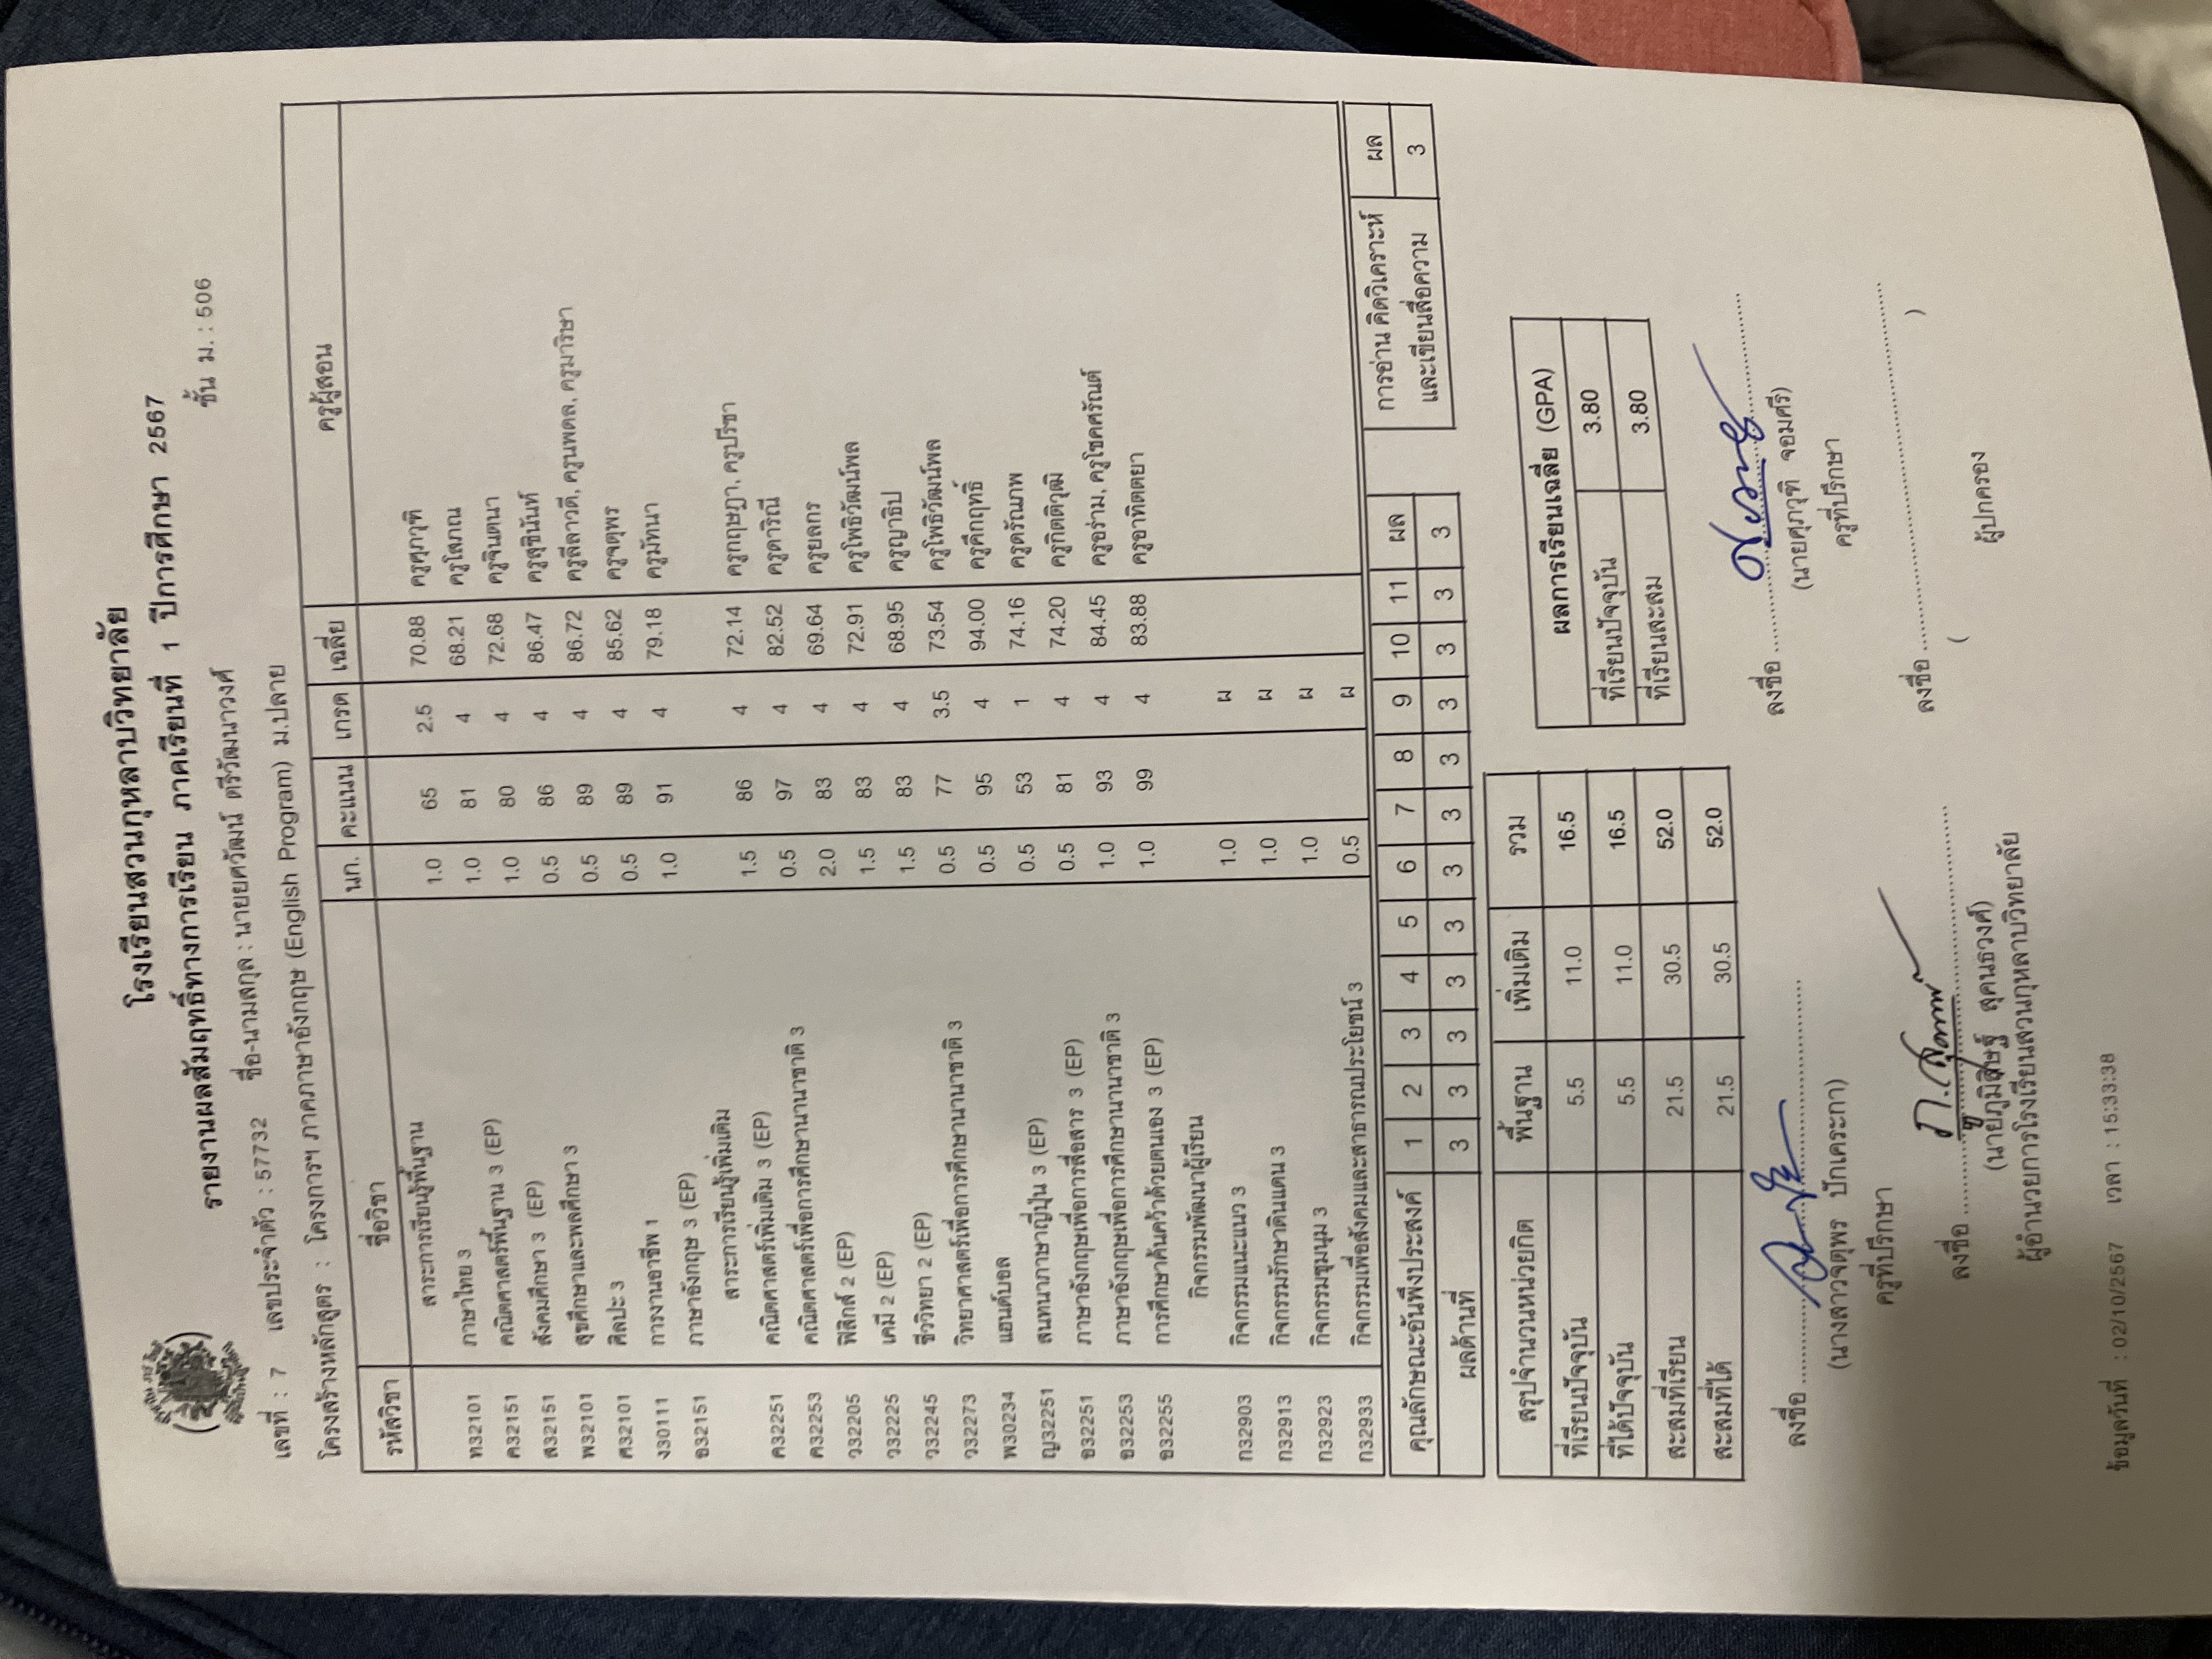 โรงเรียนสวนกุหลาบวิทยาลัย
รายงานผลสัมฤทธิ์ทางการเรียน ภาคเรียนที่ 1 ปีการศึกษา 2567
เลขที่ : 7 เลขประจำตัว : 57732 ชื่อ-นามสกุล : นายยศวัฒน์ ตรีวัฒนาวงศ์ ชั้น ม. : 506
โครงสร้างหลักสูตร : โครงการฯ ภาคภาษาอังกฤษ (English Program) ม.ปลาย
รหัสวิชา ชื่อวิชา นก. คะแนน เกรด เฉลี่ย ครูผู้สอน
สาระการเรียนรู้พื้นฐาน
ท32101 ภาษาไทย 3 1.0 65 2.5 70.88 ครูศุภวุฒิ
ค32151 คณิตศาสตร์พื้นฐาน 3 (EP) 1.0 81 4 68.21 ครูโสภณ
ส32151 สังคมศึกษา 3 (EP) 1.0 80 4 72.68 ครูจินตนา
พ32101 สุขศึกษาและพลศึกษา 3 0.5 86 4 86.47 ครูสุชินันท์
ศ32101 ศิลปะ 3 0.5 89 4 86.72 ครูลีลาวดี, ครูนพดล, ครูมาริษา
ง30111 การงานอาชีพ 1 0.5 89 4 85.62 ครูจตุพร
อ32151 ภาษาอังกฤษ 3 (EP) 1.0 91 4 79.18 ครูมัทนา
สาระการเรียนรู้เพิ่มเติม
ค32251 คณิตศาสตร์เพิ่มเติม 3 (EP) 1.5 86 4 72.14 ครูกฤษฎา, ครูปรีชา
ค32253 คณิตศาสตร์เพื่อการศึกษานานาชาติ 3 0.5 97 4 82.52 ครูดาริณี
ว32205 ฟิสิกส์ 2 (EP) 2.0 83 4 69.64 ครูยลกร
ว32225 เคมี 2 (EP) 1.5 83 4 72.91 ครูโพธิวัฒน์พล
ว32245 ชีววิทยา 2 (EP) 1.5 83 4 68.95 ครูญาธิป
ว32273 วิทยาศาสตร์เพื่อการศึกษานานาชาติ 3 0.5 77 3.5 73.54 ครูโพธิวัฒน์พล
พ30234 แฮนด์บอล 0.5 95 4 94.00 ครูคึกฤทธิ์
ญ32251 สนทนาภาษาญี่ปุ่น 3 (EP) 0.5 53 1 74.16 ครูดรัณภพ
อ32251 ภาษาอังกฤษเพื่อการสื่อสาร 3 (EP) 0.5 81 4 74.20 ครูกิตติวุฒิ
อ32253 ภาษาอังกฤษเพื่อการศึกษานานาชาติ 3 1.0 93 4 84.45 ครูอร่าม, ครูโชคศรัณต์
อ32255 การศึกษาค้นคว้าด้วยตนเอง 3 (EP) 1.0 99 4 83.88 ครูอาทิตตยา
กิจกรรมพัฒนาผู้เรียน
ก32903 กิจกรรมแนะแนว 3 1.0 ผ
ก32913 กิจกรรมรักษาดินแดน 3 1.0 ผ
ก32923 กิจกรรมชุมนุม 3 1.0 ผ
ก32933 กิจกรรมเพื่อสังคมและสาธารณประโยชน์ 3 0.5 ผ
คุณลักษณะอันพึงประสงค์ 1 2 3 4 5 6 7 8 9 10 11 ผล
ผลด้านที่ 3 3 3 3 3 3 3 3 3 3 3 3
การอ่าน คิดวิเคราะห์ ผล
และเขียนสื่อความ 3
สรุปจำนวนหน่วยกิต พื้นฐาน เพิ่มเติม รวม
ที่เรียนปัจจุบัน 5.5 11.0 16.5
ที่ได้ปัจจุบัน 5.5 11.0 16.5
สะสมที่เรียน 21.5 30.5 52.0
สะสมที่ได้ 21.5 30.5 52.0
ผลการเรียนเฉลี่ย (GPA)
ที่เรียนปัจจุบัน 3.80
ที่เรียนสะสม 3.80
ลงชื่อ
(นางสาวจตุพร ปักเคระกา)
ครูที่ปรึกษา
ลงชื่อ
(นายศุภวุฒิ จอมศรี)
ครูที่ปรึกษา
ลงชื่อ
(นายภูมิสิษฐ์ สุคนธวงศ์)
ผู้อำนวยการโรงเรียนสวนกุหลาบวิทยาลัย
ลงชื่อ
( )
ผู้ปกครอง
ข้อมูลวันที่ : 02/10/2567 เวลา : 15:33:38